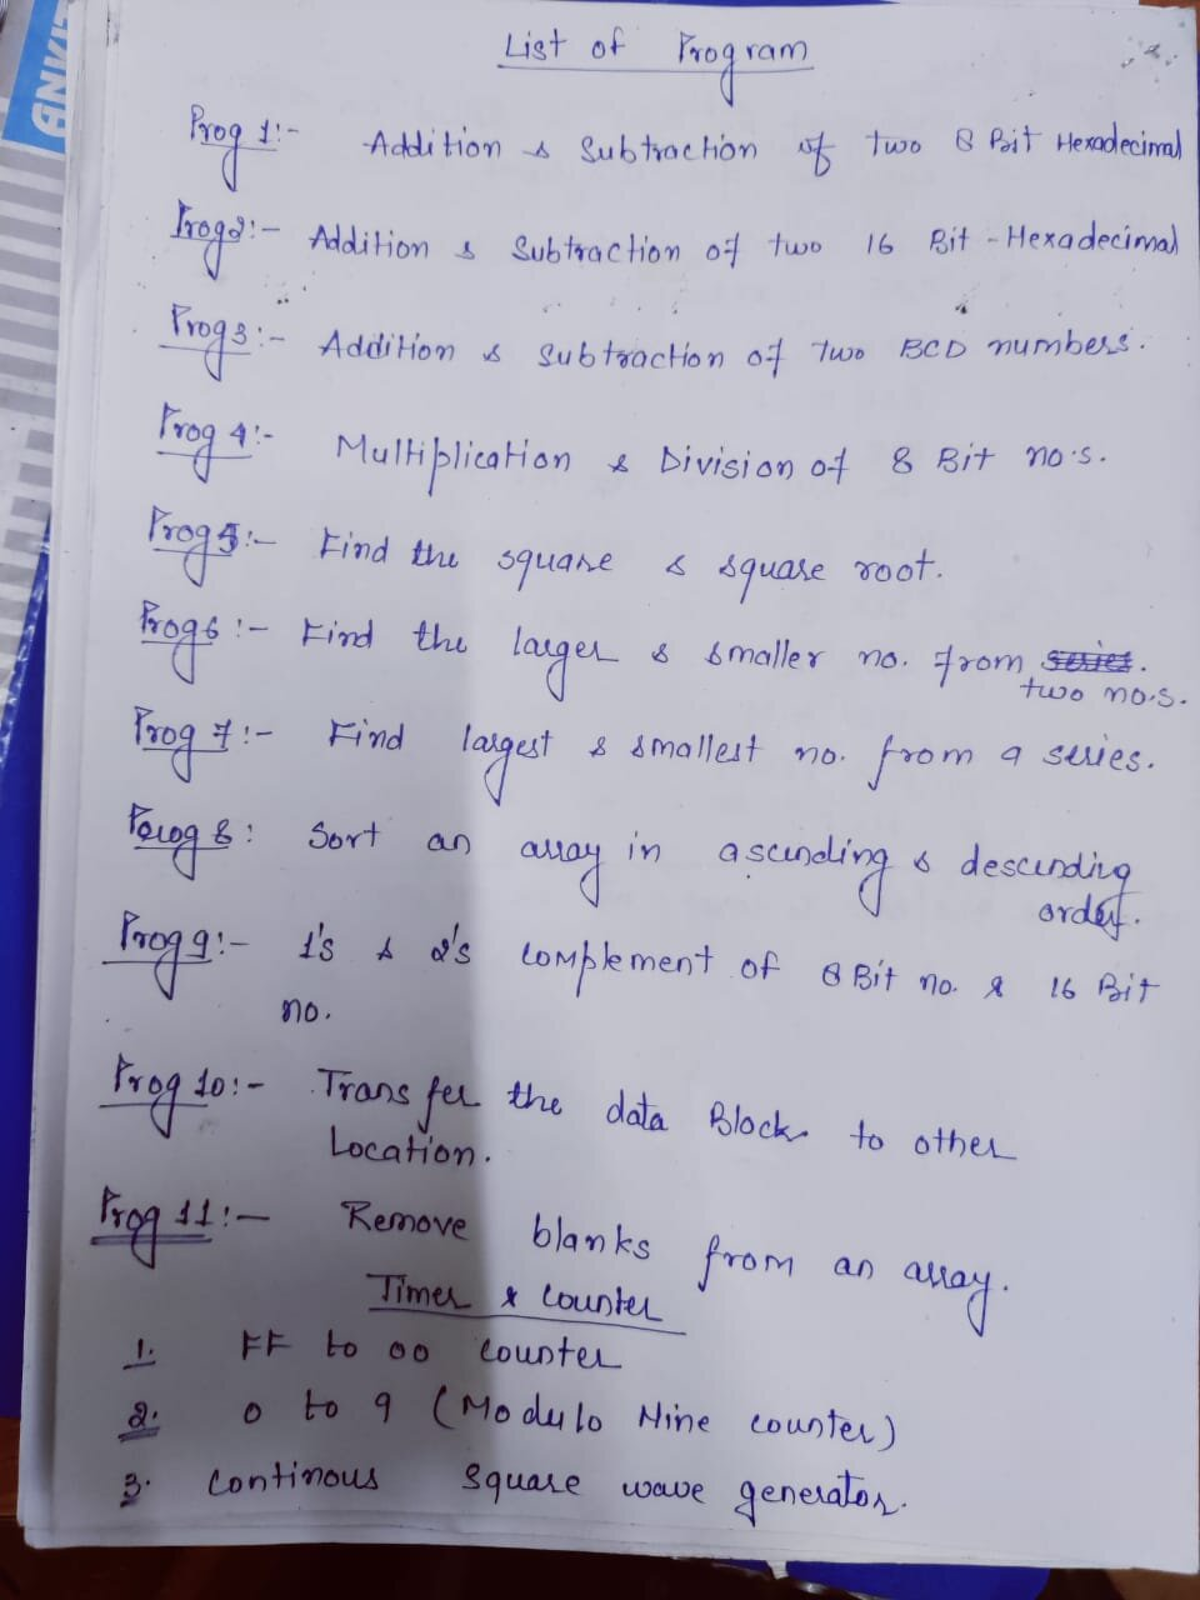 ANKIT
List of Program
Prog 1:- Addition & Subtraction of two 8 Bit Hexadecimal
Prog2:- Addition & Subtraction of two 16 Bit - Hexadecimal
Prog3:- Addition & Subtraction of two BCD numbers.
Prog 4:- Multiplication & Division of 8 Bit no's.
Prog5:- Find the square & square root.
Prog6:- Find the larger & smaller no. from series.
two no.s.
Prog 7:- Find largest & smallest no. from a series.
Prog 8: Sort an array in ascending & descending
order.
Prog 9:- 1's & 2's complement of 8 Bit no. & 16 Bit
no.
Prog 10:- Transfer the data Block to other
Location.
Prog 11:- Remove blanks from an array.
Timer & Counter
1. FF to 00 counter
2. 0 to 9 (Modulo Nine counter)
3. Continous square wave generator.